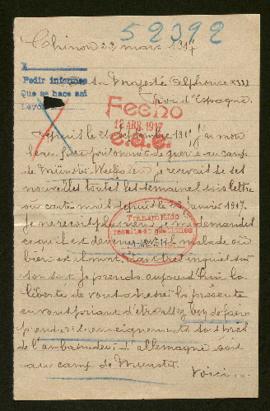 52392
Chinon 22 mars 1917
A
Pedir informes
Que se hace así
Sa Majesté Alphonse XIII
Roi d'Espagne.
Fecho
18 ABR. 1917
Depuis le septembre 191 j'ai mon
frère prisonnier de guerre au camp
de Munster je recevais de ses
nouvelles toutes les semaines soit lettre
ou carte mais depuis le janvier 1917.
je ne reçois plus rien je me demande
ce qu'il est devenu est il malade ou
bien est il mort je suis très inquiet sur
son sort je prends aujourd'hui la
liberté de vous adresser la présente
en vous priant de
prendre des renseignements soit près
de l'ambassadeur d'allemagne soit
au camp de Munster.
Voici